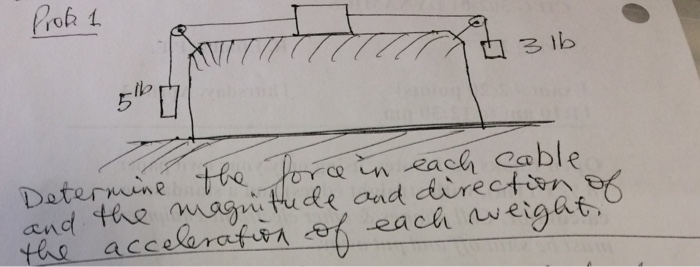 Prob 1
3 lb
5 lb
Determine the force in each cable
and the magnitude and direction of
the acceleration of each weight.